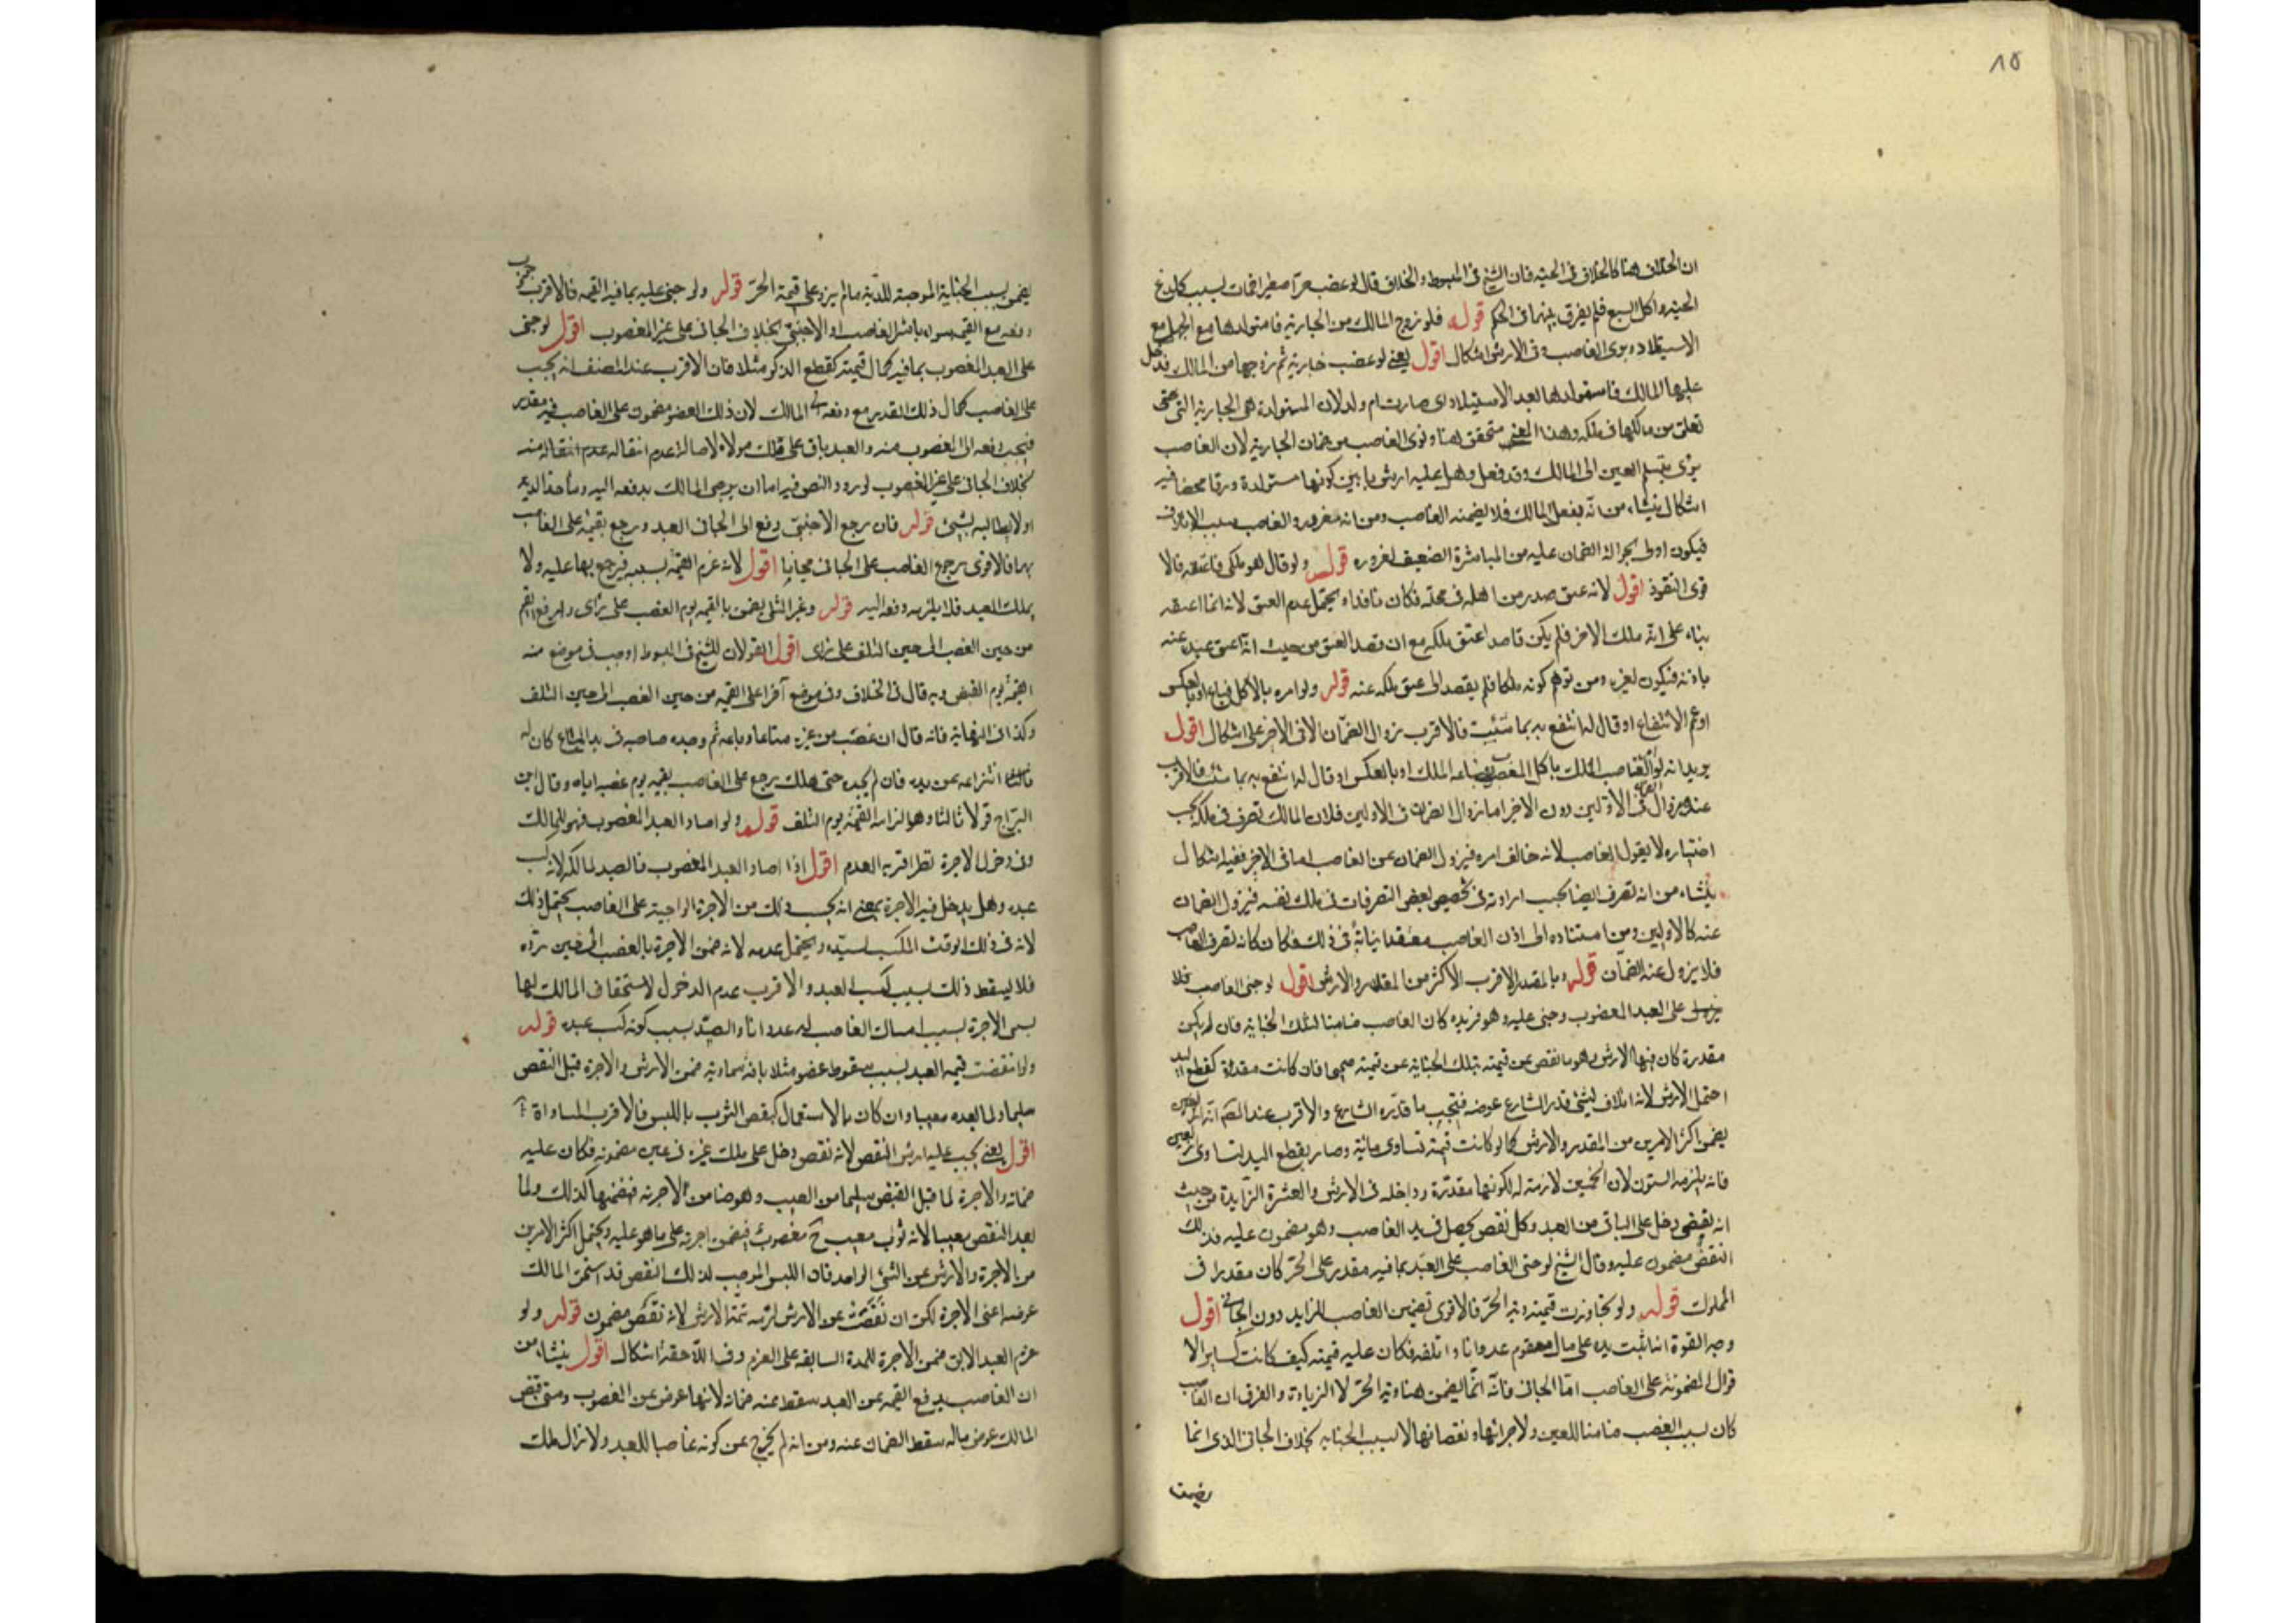 ١٥
ان الخلاف هنا كالخلاف فى الحية فان الشيخ فى المبسوط والخلاف قال لو غصب حرا صغيرا فمات بسبب كلدغ
الحية واكل السبع فلم يفرق بينهما فى الحكم قوله فلو زوج المالك من الجارية فاستولدها مع الجهل مع
الاستيلاد وبرى الغاصب وفى الارش اشكال اقول يعنى لو غصب جارية ثم زوجها من المالك فدخل
عليها المالك فاستولدها بعد الاستيلاد اى صارت ام ولد لان المستولدة هى الجارية التى
تعلق من مالكها فى ملكه وهذا المعنى متحقق هنا وبرى الغاصب من ضمان الجارية لان الغاصب
برى بتسليم العين الى المالك وقد فعل وهل عليه ارش ما بين كونها مستولدة ورقا محضا فيه
اشكال ينشاء من انه بفعل المالك فلا يضمنه الغاصب ومن انه مغرور والغاصب سبب الاتلاف
فيكون اولى بحوالة الضمان عليه من المباشرة الضعيف لغروره قوله ولو قال هو ملكى فاعتقه فالا
قوى النفوذ اقول لانه عتق صدر من اهله فى محله فكان نافذا ويحتمل عدم العتق لانه انما اعتقه
بناء على انه ملك الاخر فلم يكن قاصدا عتق ملكه مع ان قصد العتق من حيث انه اعتق عبده عنه
باذنه فيكون لغيره ومن توهم كونه ملكا فلم يقصد الى عتق ملكه عنه قوله ولو امره بالاكل فباع او بالعكس
او عمم الانتفاع او قال له انتفع به بما شئت فالاقرب زوال الضمان الا فى الاخر على اشكال اقول
يريد انه لو امر الغاصب المالك باكل المغصوب فباعه الملك او بالعكس او قال له انتفع به بما شئت فالاقرب
عنده زوال الضمان فى الاولين دون الاخير اما زوال الضمان فى الاولين فلان المالك تصرف فى ملكه بحسب
اختياره لا بقول الغاصب لانه خالف امره فيزول الضمان عن الغاصب اما فى الاخر ففيه اشكال
ينشاء من انه تصرف ايضا بحسب ارادته فى تخصيص بعض التصرفات فى ملك نفسه فيزول الضمان
عنه كالاولين ومن استناده الى اذن الغاصب معتقدا نيابة فى ذلك فكان كانه تصرف الغاصب
فلا يزول عنه الضمان قوله وبالمقدر الاقرب الاكثر من المقدر والارش اقول لو جنى الغاصب
على العبد المغصوب وجنى عليه وهو فى يده كان الغاصب ضامنا لتلك الجناية فان لم يكن
مقدرة كان فيها الارش وهو ما نقص من قيمته بتلك الجناية عن قيمته صحيحا فان كانت مقدرة كقطع اليد
احتمل الارش لانه اتلاف لشىء قدر الشارع عوضه فيجب ما قدره الشارع والاقرب عند المصنف انه
يضمن اكثر الامرين من المقدر والارش كما لو كانت قيمته تساوى مائة وصار بقطع اليد تساوى اربعين
فانه يلزمه الستون لان الخمسين لازمة له لكونها مقدرة وداخله فى الارش والعشرة الزايدة من حيث
انه نقص دخل على الباقى من العبد وكل نقص يحصل فى يد الغاصب وهو مضمون عليه فذلك
النقص مضمون عليه وقال الشيخ لو جنى الغاصب على العبد بما فيه مقدر على الحر كان مقدرا فى
المملوك قوله ولو تجاوزت قيمته دية الحر فالاقوى تضمين الغاصب الزايد دون الجانى اقول
وجه القوة انه اثبت يده على مال متقوم عدوانا واتلفه فكان عليه قيمته كيف كانت كساير الا
موال المضمونة على الغاصب اما الجانى فانه انما يضمن هنا دية الحر لا الزيادة والفرق ان الغاصب
كان بسبب الغصب ضامنا للعين ولاجزائها ونقصانها لا بسبب الجناية بخلاف الجانى الذى انما
يضمن
يضمن بسبب الجناية الموجبة للدية ما لم يزد على قيمة الحر قوله ولو جنى عليه بما فيه القيمة فالاقرب
دفعه مع القيمة سواء باشر الغاصب او الاجنبى بخلاف الجانى على غير المغصوب اقول لو جنى
على العبد المغصوب بما فيه كمال قيمته كقطع الذكر مثلا فان الاقرب عند المصنف انه يجب
على الغاصب كمال ذلك القدر مع دفعه الى المالك لان ذلك العضو مضمون على الغاصب فيه مقدر
فيجب دفعه الى المغصوب منه والعبد باق على ملك مولاه لاصالة عدم انتقاله عدم انتقاله منه
بخلاف الجانى على غير المغصوب لورود النص فيه اما ان يرضى المالك بدفعه اليه وياخذ الدية
او لا يطالبه بشىء قوله فان رجع الاجنبى دفع الى الجانى العبد ورجع بقيمته على الغاصب
بها فالاقوى رجوع الغاصب على الجانى مجانا اقول لانه غرم القيمة بسببه فيرجع بها عليه ولا
يملك العبد فلا يلزمه دفعه اليه قوله وغير المثلى يضمن بالقيمة يوم الغصب على راى وارفع القيم
من حين الغصب الى حين التلف على راى اقول القولان للشيخ فى المبسوط اوجب فى موضع منه
القيمة يوم القبض وبه قال فى الخلاف وفى موضع آخر اعلى القيمة من حين الغصب الى حين التلف
وكذا فى النهاية فانه قال ان غصب من غيره متاعا وباعه ثم وجده صاحبه فى يد المبتاع كان له
انتزاعه من يده فان لم يجده حتى هلك يرجع على الغاصب بقيمة يوم غصبه اياه وقال ابن
البراج قولا ثالثا وهو الزامه القيمة يوم التلف قوله ولو اصاد العبد المغصوب فهو للمالك
وفى دخول الاجرة نظر اقربه العدم اقول اذا اصاد العبد المغصوب فالصيد لمالكه لانه كسب
عبده وهل يدخل فيه الاجرة بمعنى انه يحسب ذلك من الاجرة الواجبة على الغاصب يحتمل ذلك
لانه فى ذلك الوقت اكتسب لسيده ويحتمل عدمه لانه ضمن الاجرة بالغصب الى حين رده
فلا يسقط ذلك بسبب كسب العبد والاقرب عدم الدخول لاستحقاق المالك لهما
بسى الاجرة بسبب امساك الغاصب له عدوانا والصيد بسبب كونه كسب عبده قوله
ولو نقصت قيمة العبد بسبب سقوط عضو مثلا بافة سماوية ضمن الارش والاجرة قبل النقص
سليما ولما بعده معيبا وان كان بالاستعمال كنقص الثوب باللبس فالاقرب المساواة
اقول يعنى يجب عليه ارش النقص لانه نقص دخل على ملك غيره فى عين مضمونه فكان عليه
ضمانه والاجرة لما قبل القبض سليما من العيب وهو ضامن الاجرته فيضمنها كذلك ولما
بعد النقص معيبا لانه ثوب معيب ح مغصوب فيضمن اجرته على ما هو عليه ويحتمل اكثر الامرين
من الاجرة والارش عن الشىء الواحد فان اللبس الموجب لذلك النقص قد استحق المالك
عوضه اعنى الاجرة لكن ان نقصت عن الارش لزمه تتمة الارش لانه نقص مضمون قوله ولو
غرم العبد الابق ضمن الاجرة للمدة السابقة على الغرم وفى اللاحقة اشكال اقول ينشاء من
ان الغاصب بدفع القيمة عن العبد سقط عنه ضمانه لانها عوض عن المغصوب ومتى قبض
المالك عوض ماله سقط الضمان عنه ومن انه لم يخرج عن كونه غاصبا للعبد ولا زال ملك